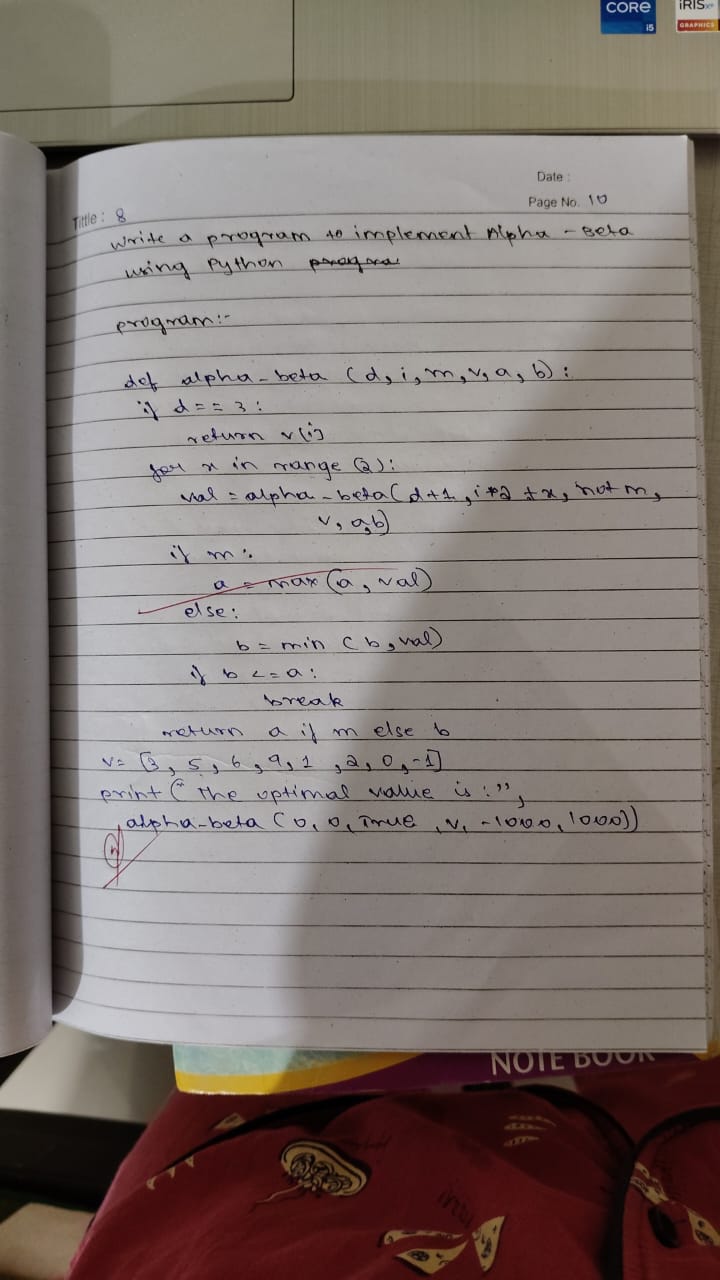 CORE
i5
iRIS xe
GRAPHICS
Date :
Page No. 10
Tittle : 8
Write a program to implement Alpha - Beta
using Python progra
program:-
def alpha-beta (d, i, m, v, a, b) :
if d == 3 :
return v[i]
for x in range (2):
val = alpha-beta( d+1, i*2 + x, not m,
v, a,b)
if m :
a = max (a, val)
else:
b = min (b, val)
if b <= a :
break
return a if m else b
v= [3, 5, 6, 9, 1, 2, 0, -1]
print (" The optimal value is :",
alpha-beta (0, 0, True, v, -1000, 1000))
NOTE BOOK